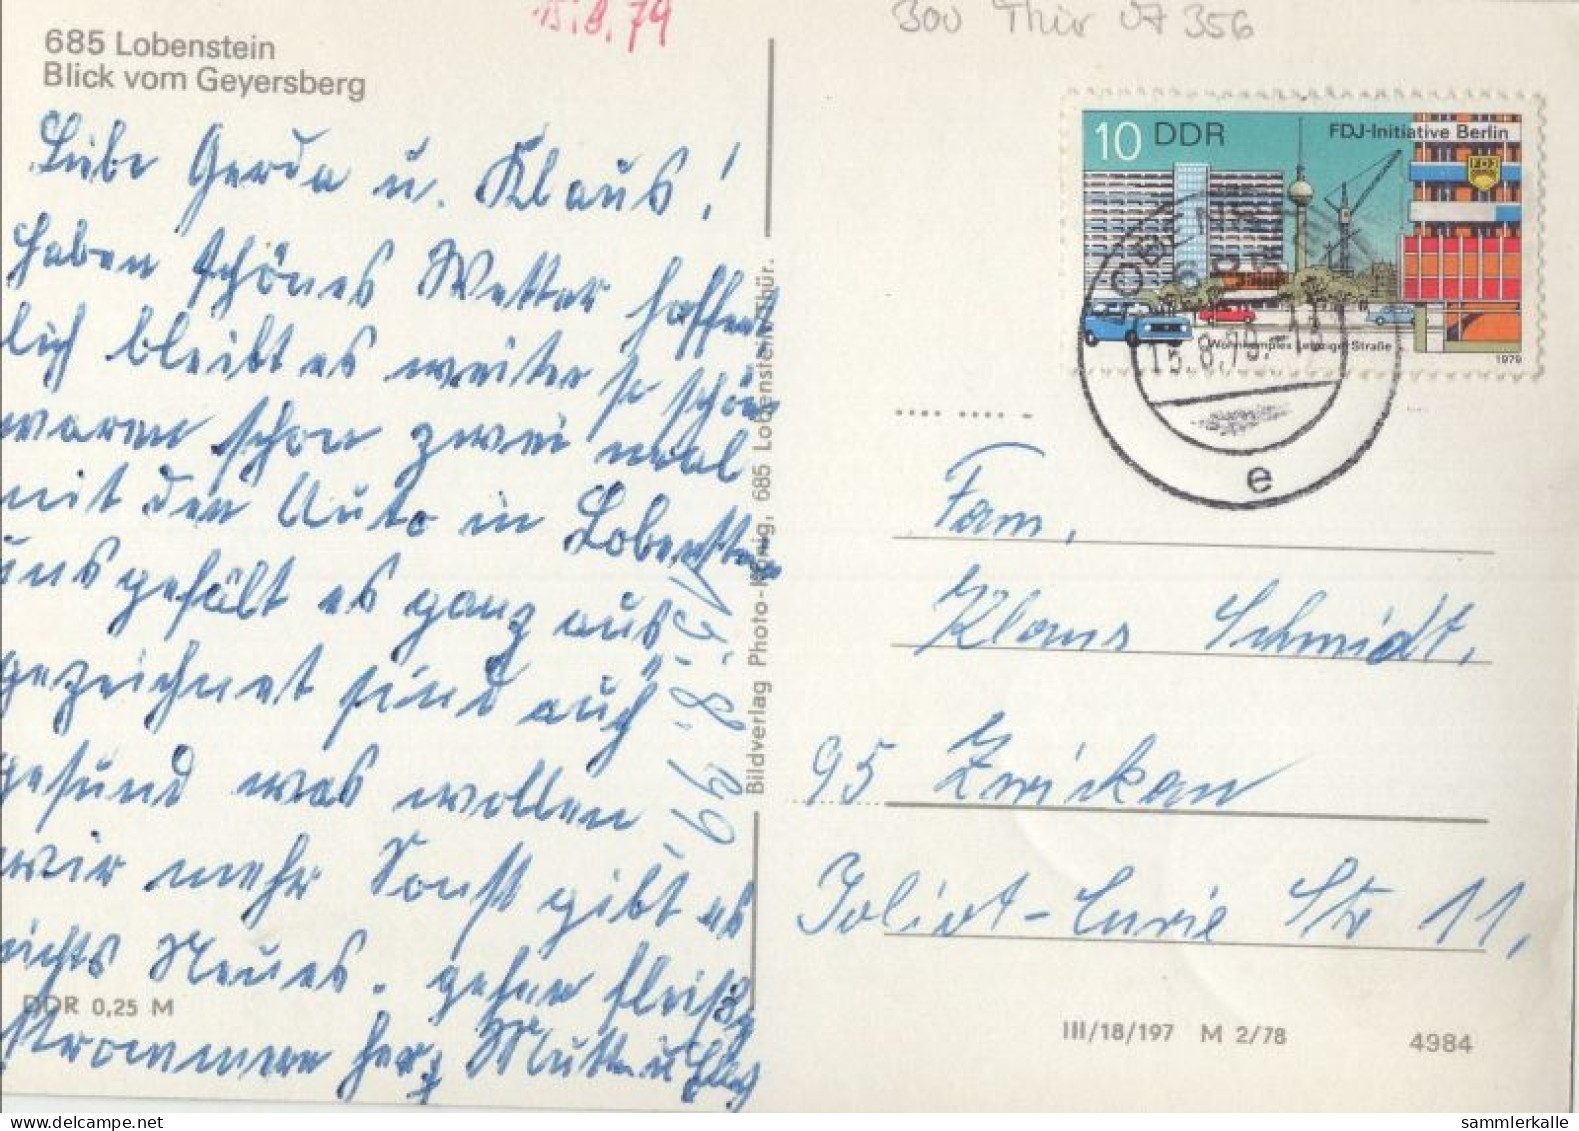 15.8.79
300 Thür 07 356
685 Lobenstein
Blick vom Geyersberg
Liebe Gerda u. Klaus!
haben schönes Wetter hoffent
lich bleibt es weiter so schön
waren schon zwei mal
mit den Auto in
uns gefält es ganz aus
gezeichnet sind auch
gesund was wollen
wir mehr Sonst gibt es
nichts Neues. gehen fleißig
herz Mutti u
13.8.79
DDR 0,25 M
Bildverlag Photo-König, 685 Lobenstein/Thür.
10 DDR
FDJ-Initiative Berlin
FDJ
Wohnkomplex Leipziger Straße
1979
15.8.79
e
Fam.
Klaus Schmidt,
95 Zwickau
Joliot-Curie Str 11,
III/18/197 M 2/78
4984
sammlerkalle